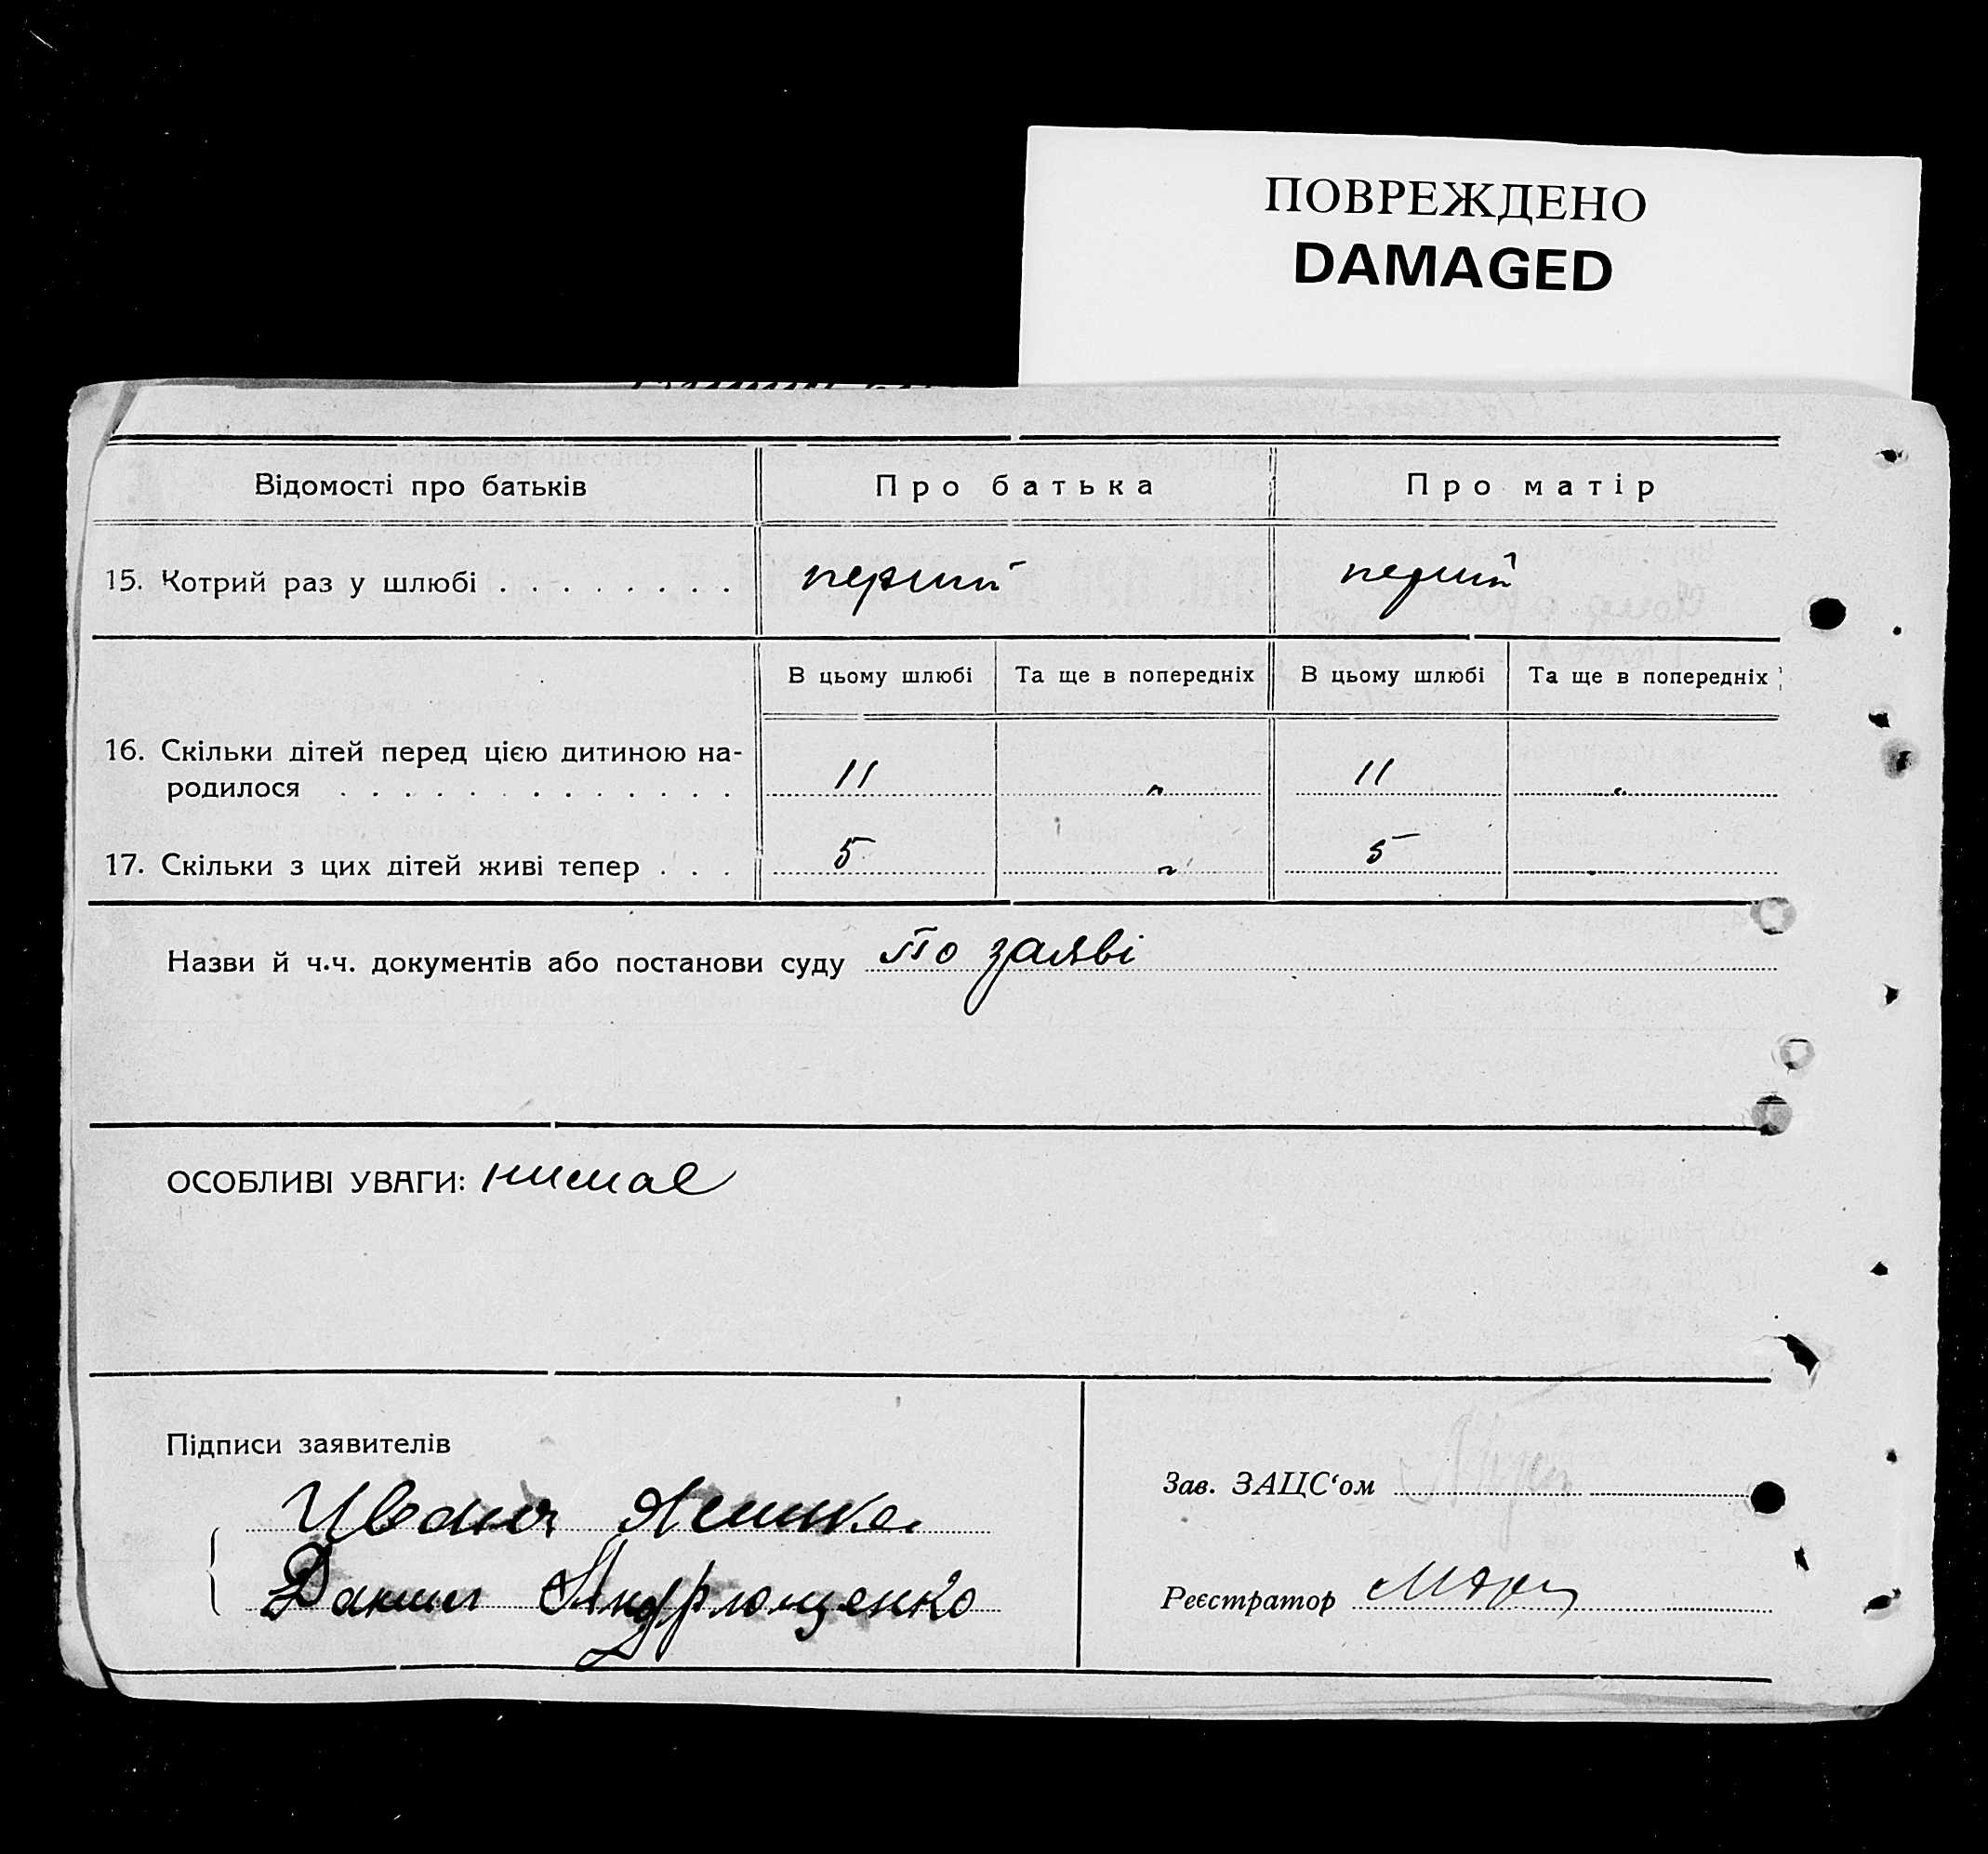 ПОВРЕЖДЕНО
DAMAGED
Відомості про батьків
Про батька
Про матір
15. Котрий раз у шлюбі . . . . . . . .
перший
перший
В цьому шлюбі
Та ще в попередніх
В цьому шлюбі
Та ще в попередніх
16. Скільки дітей перед цією дитиною на-
родилося . . . . . . . . . . . .
11
"
11
"
17. Скільки з цих дітей живі тепер . . .
5
"
5
Назви й ч.ч. документів або постанови суду По заяві
ОСОБЛИВІ УВАГИ: нимае
Підписи заявителів
Данил Андрющенко
Зав. ЗАЦС‘ом
Реєстратор